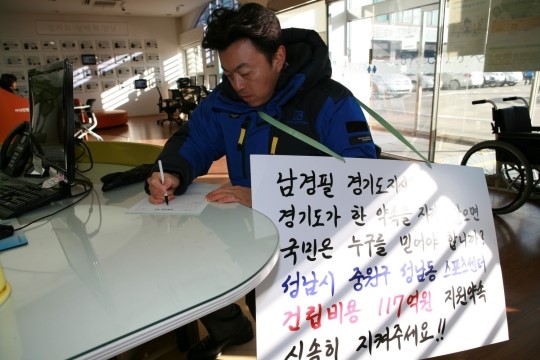 남경필 경기도지사
경기도가 한 약속을
국민은 누구를 믿어야 합니까?
성남시 중원구 성남동 스포츠센터
건립비용 117억원 지원약속
신속히 지켜주세요!!